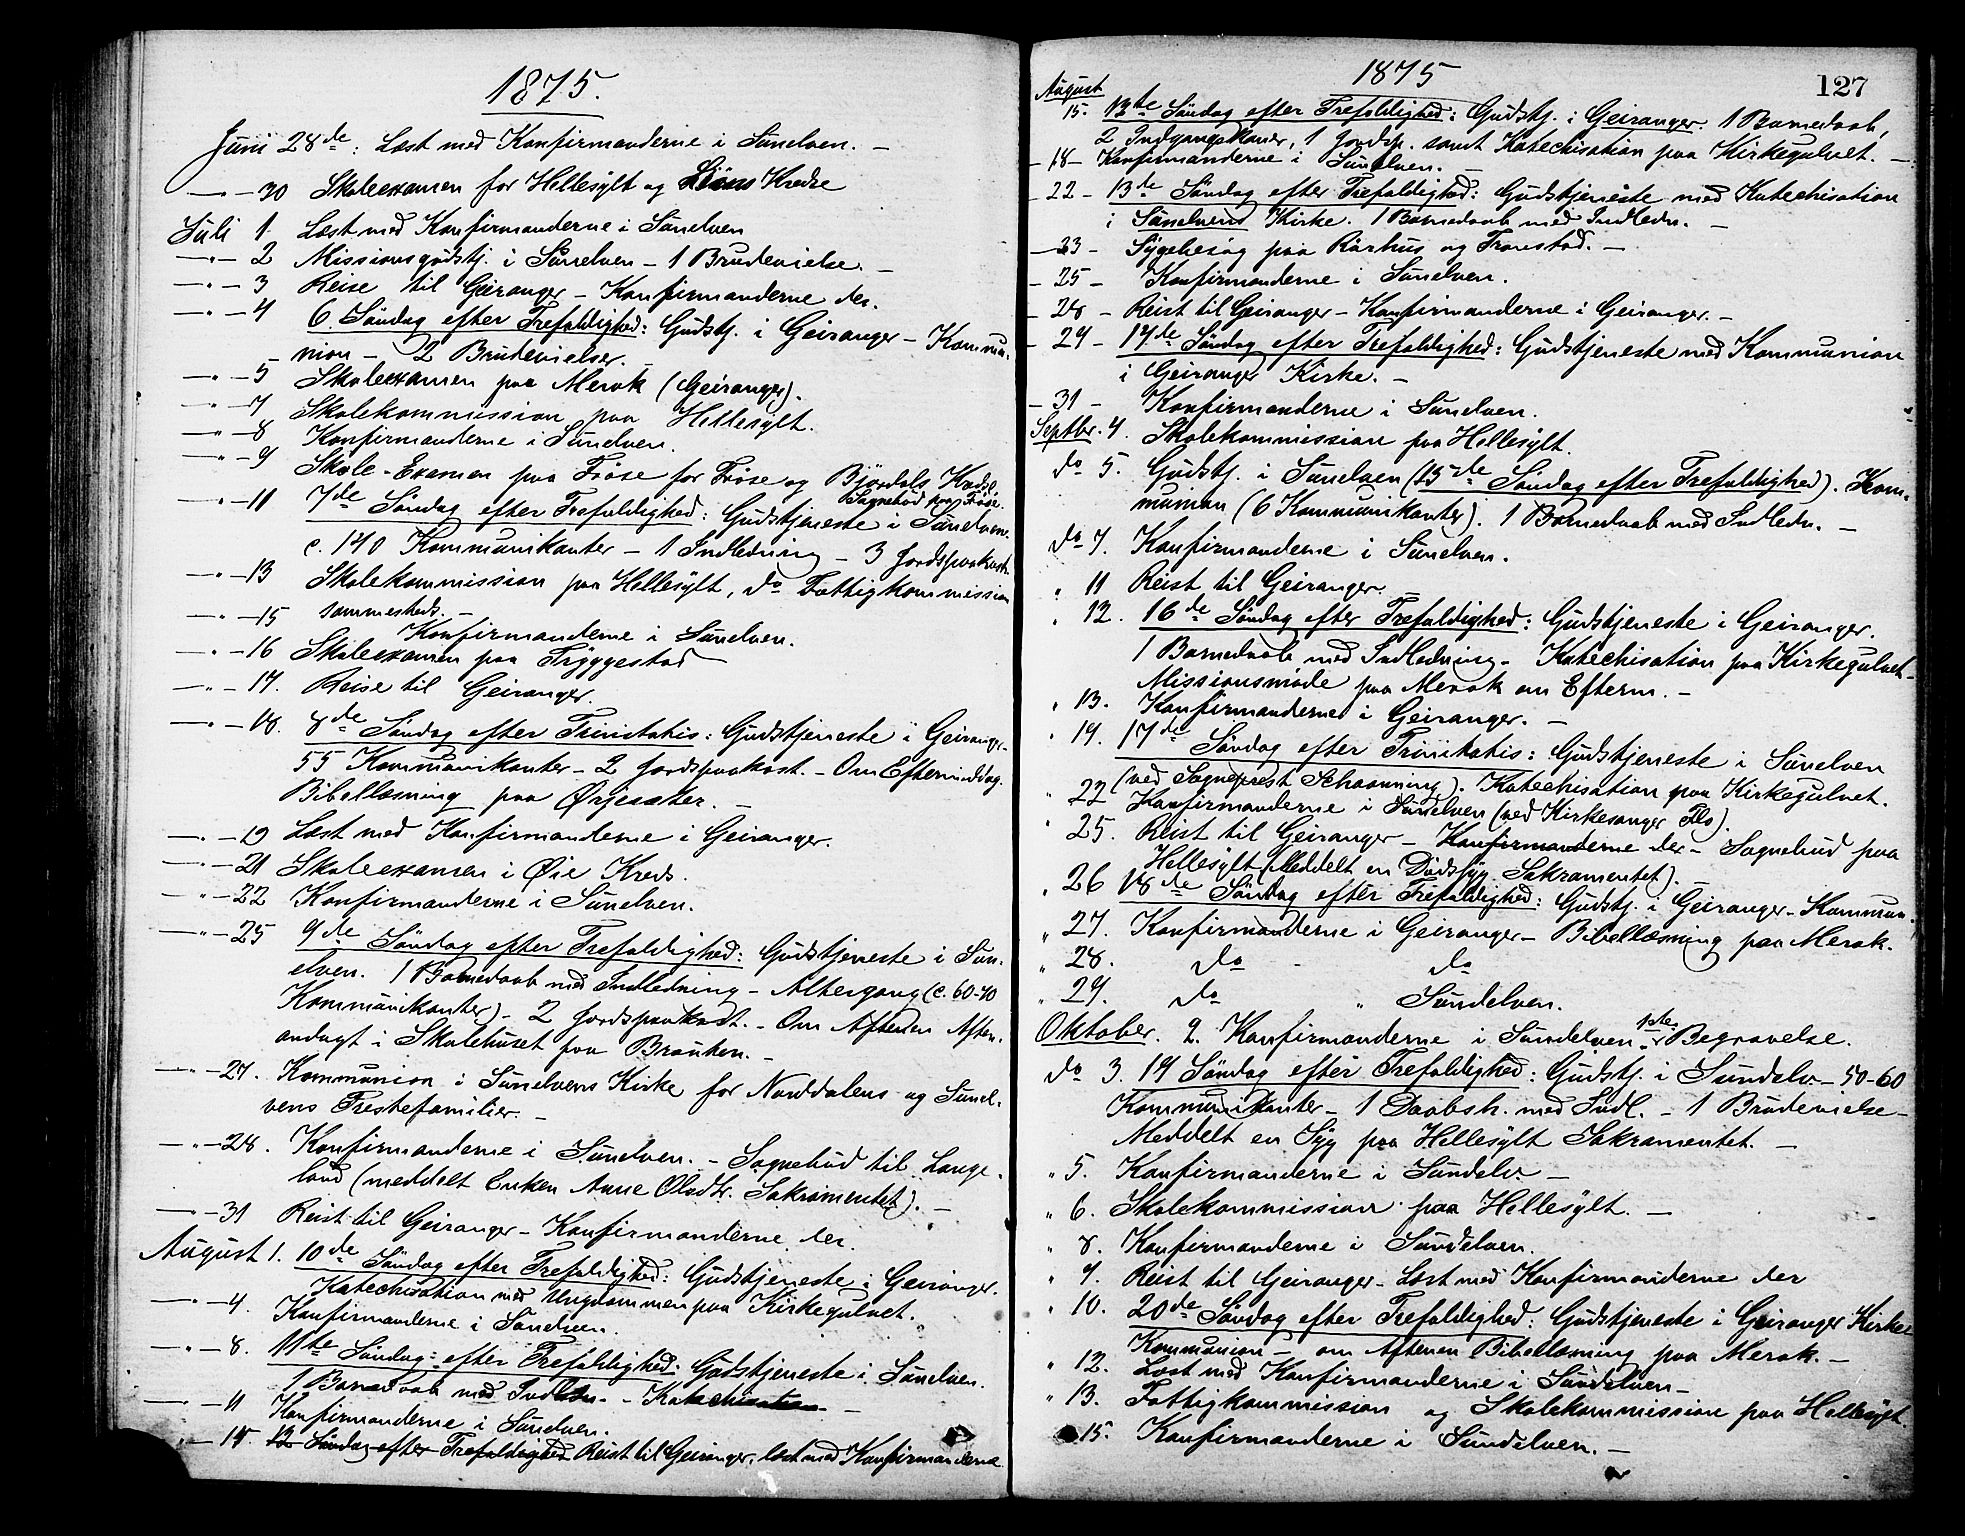 1875.
Juni 28de: Læst med Konfirmanderne i Sunelven. –
—"— 30 Skoleexamen for Hellesylt og Kredse
Juli 1. Læst med Konfirmanderne i Sunelven
—"— 2 Missionsgudstj. i Sunelven – 1 Brudevielse. –
—"— 3 Reise til Geiranger – Konfirmanderne der.
—"— 4 6. Søndag efter Trefoldighed: Gudstj. i Geiranger – Kommu-
nion – 2 Brudevielser. –
—"— 5 Skoleexamen paa Merok (Geiranger).
—"— 7 Skolekommission paa Hellesylt.
—"— 8 Konfirmanderne i Sunelven.
—"— 9 Skole-Examen paa Frøse for Frøse og Bjørdals Kredse
Sognebud paa Frøse.
—"— 11 7de Søndag efter Trefoldighed: Gudstjeneste i Sunelven.
c. 140 Kommunikanter – 1 Indledning – 3 Jordspaakast.
—"— 13 Skolekommission paa Hellesylt, do Fattigkommission
sammesteds. –
—"— 15 Konfirmanderne i Sunelven.
—"— 16 Skoleexamen paa Tryggestad
—"— 17. Reise til Geiranger.
—"— 18. 8de Søndag efter Trinitatis: Gudstjeneste i Geiranger –
55 Kommunikanter – 2 Jordspaakast. – Om Eftermiddag.
Bibellæsning paa Ørjesæter. –
—"— 19 Læst med Konfirmanderne i Geiranger.
—"— 21 Skoleexamen i Øie Kreds.
—"— 22 Konfirmanderne i Sunelven.
—"— 25 9de Søndag efter Trefoldighed: Gudstjeneste i Sun-
elven. 1 Barnedaab med Indledning – Altergang (c. 60-70
Kommunikanter) – 2 Jordspaakast. – Om Aftenen Aften-
andagt i Skolehuset paa Brauten. –
—"— 27. Kommunion i Sunelvens Kirke for Norddalens og Sunel-
vens Prestefamilier. –
—"— 28. Konfirmanderne i Sunelven. – Sognebud til Lange-
land (meddelt Enken Anne Olsdtr. Sakramentet). –
—"— 31 Reist til Geiranger – Konfirmanderne der.
August 1. 10de Søndag efter Trefoldighed: Gudstjeneste i Geiranger.
Katechisation med Ungdommen paa Kirkegulvet.
—"— 4. Konfirmanderne i Sunelven.
—"— 8. 11te Søndag efter Trefoldighed: Gudstjeneste i Sunelven.
1 Barnedaab med Indledn. – Katechisation –
—"— 11 Konfirmanderne i Sunelven.
—"— 14 12 Søndag efter Trefoldighed Reist til Geiranger, læst med Konfirmanderne
1875
127
August
15. 13te Søndag efter Trefoldighed: Gudstj. i Geiranger. 1 Barnedaab,
2 Indgangskoner, 1 Jordsp. samt Katechisation paa Kirkegulvet. –
– 18 – Konfirmanderne i Sunelven. –
– 22 – 13de Søndag efter Trefoldighed: Gudstjeneste med Katechisation
i Sunelvens Kirke. 1 Barnedaab med Indledn. –
– 23 – Sygebesøg paa Rørhus og Tronstad. –
– 25 – Konfirmanderne i Sunelven.
– 28 – Reist til Geiranger – Konfirmanderne i Geiranger. –
– 29 – 14de Søndag efter Trefoldighed: Gudstjeneste med Kommunion
i Geiranger Kirke. –
– 31 – Konfirmanderne i Sunelven.
Septbr. 4. Skolekommission paa Hellesylt.
do 5. Gudstj. i Sunelven (15de Søndag efter Trefoldighed). Kom-
munion (6 Kommunikanter). 1 Barnedaab med Indledn. –
do 7. Konfirmanderne i Sunelven.
" 11 Reist til Geiranger.
" 12. 16de Søndag efter Trefoldighed: Gudstjeneste i Geiranger.
1 Barnedaab med Indledning – Katechisation paa Kirkegulvet –
Missionsmøde paa Merok om Efterm. –
" 13. Konfirmanderne i Geiranger. –
" 19. 17de Søndag efter Trinitatis: Gudstjeneste i Sunelven
(ved Sogneprest Schaanning). Katechisation paa Kirkegulvet.
" 22 Konfirmanderne i Sunelven (ved Kirkesanger Flo).
" 25. Reist til Geiranger – Konfirmanderne der – Sognebud paa
Hellesylt (Meddelt en Dødssyg Sakramentet).
" 26 18de Søndag efter Trefoldighed: Gudstj. i Geiranger – Kommun.
" 27. Konfirmanderne i Geiranger – Bibellæsning paa Merok.
" 28. do – do
" 29. do " Sundelven.
Oktober. 2. Konfirmanderne i Sundelven – Begravelse.
do 3. 19 Søndag efter Trefoldighed: Gudstj. i Sundelv – 50-60
Kommunikanter – 1 Daabsh. med Indl. – 1 Brudevielse –
Meddelt en Syg paa Hellesylt Sakramentet. –
" 5. Konfirmanderne i Sundelv. –
" 6. Skolekommission paa Hellesylt. –
" 8. Konfirmanderne i Sundelven.
" 9. Reist til Geiranger – Læst med Konfirmanderne der
" 10. 20de Søndag efter Trefoldighed: Gudstjeneste i Geiranger Kirke
Kommunion – om Aftenen Bibellæsning paa Merok. –
" 12. Læst med Konfirmanderne i Sundelven –
" 13. Fattigkommission og Skolekommission paa Hellesylt.
15. Konfirmanderne i Sundelven. –